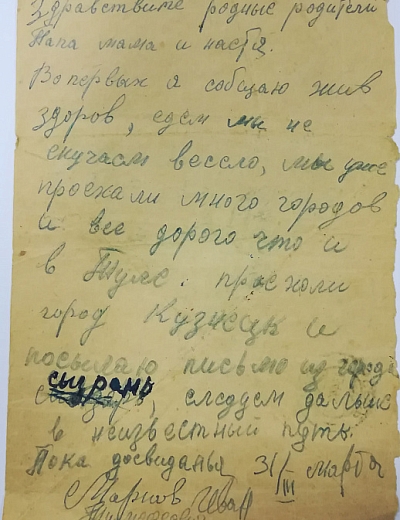 Здравствите родные родители
Папа мама и настя.
Вопервых я собщаю жив
здоров, едем мы не
скучаем весело, мы уже
проехали много городов
и все дорого что и
в Туле. проехали
город Кузнецк и
посылаю письмо из города
сызрань
следуем дальше
в неизвестный путь.
Пока досвиданья 31/III марта
Марков Иван